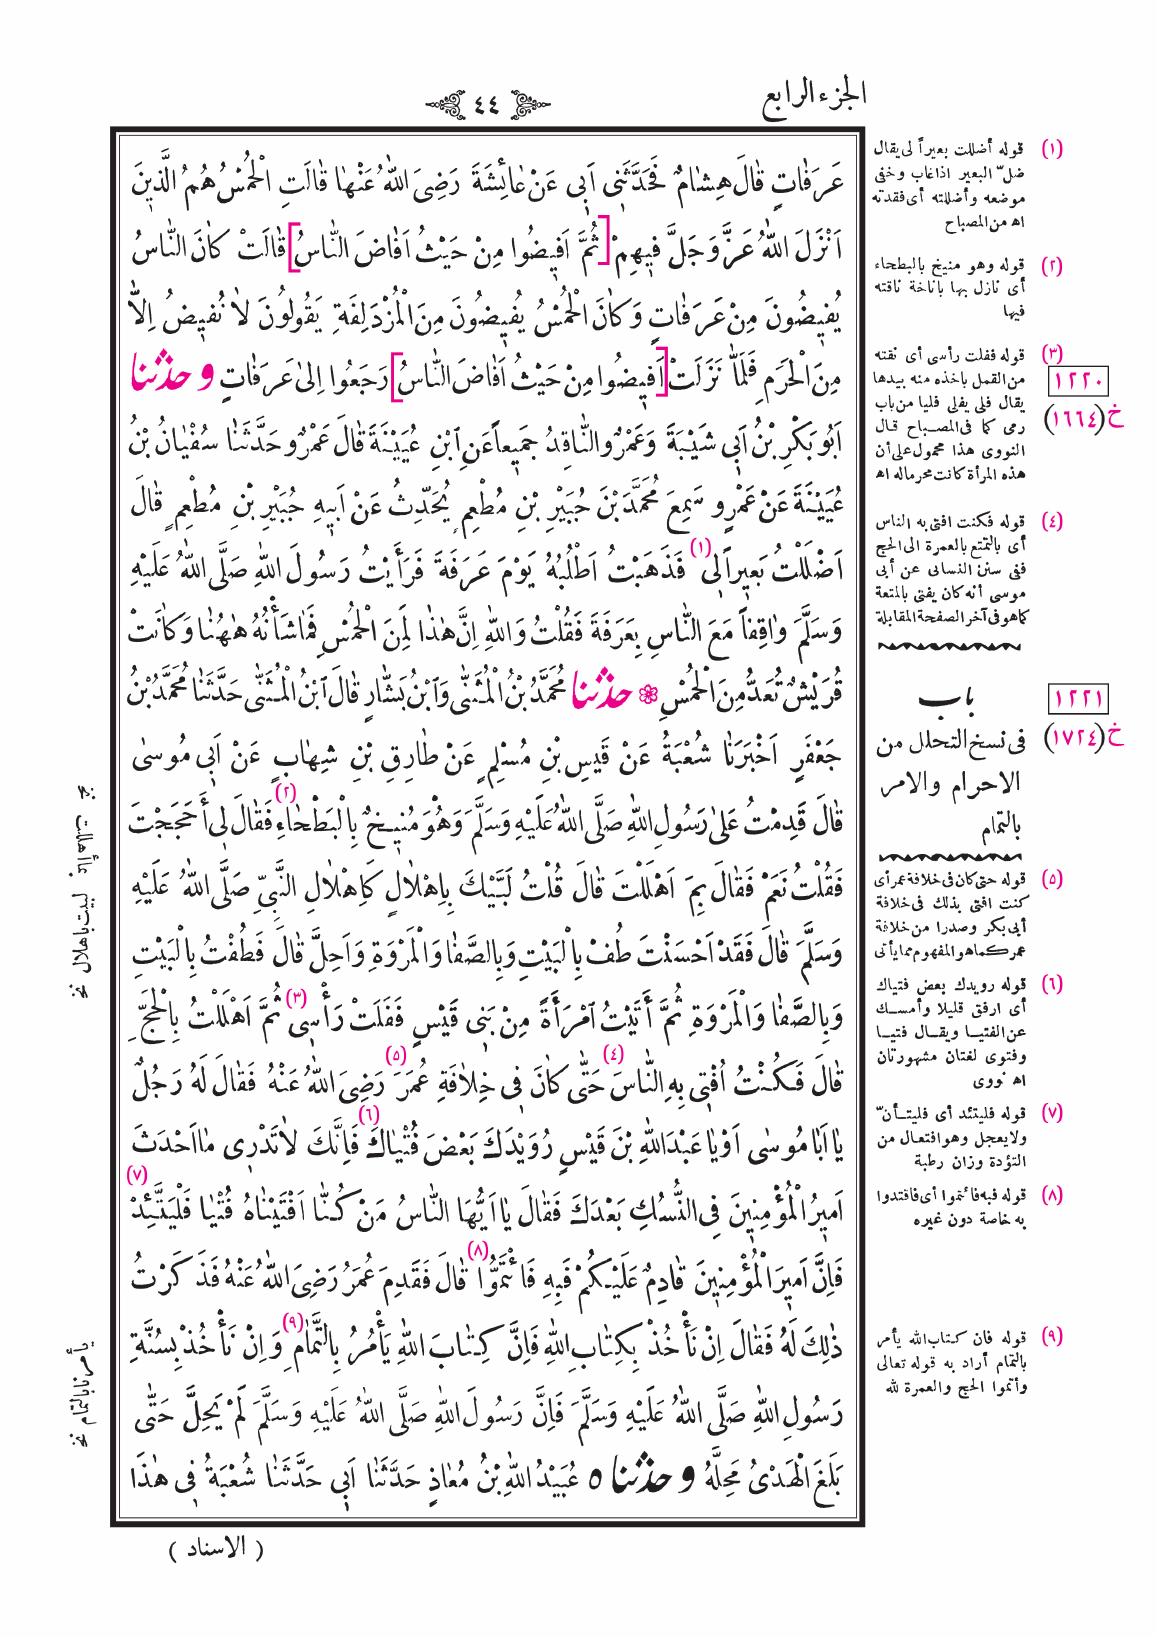 الجزء الرابع
٤٤
عَرَفَاتٍ قَالَ هِشَامٌ فَحَدَّثَنِي أَبِي عَنْ عَائِشَةَ رَضِيَ اللهُ عَنْهَا قَالَتِ الْحُمْسُ هُمُ الَّذِينَ
اَنْزَلَ اللهُ عَزَّ وَجَلَّ فِيهِمْ [ثُمَّ اَفِيضُوا مِنْ حَيْثُ اَفَاضَ النَّاسُ] قَالَتْ كَانَ النَّاسُ
يُفِيضُونَ مِنْ عَرَفَاتٍ وَكَانَ الْحُمْسُ يُفِيضُونَ مِنَ الْمُزْدَلِفَةِ يَقُولُونَ لَا نُفِيضُ اِلَّا
مِنَ الْحَرَمِ فَلَمَّا نَزَلَتْ [اَفِيضُوا مِنْ حَيْثُ اَفَاضَ النَّاسُ] رَجَعُوا اِلَى عَرَفَاتٍ و حدثنا
اَبُو بَكْرِ بْنُ اَبِي شَيْبَةَ وَعَمْرٌو النَّاقِدُ جَمِيعاً عَنِ ابْنِ عُيَيْنَةَ قَالَ عَمْرٌو حَدَّثَنَا سُفْيَانُ بْنُ
عُيَيْنَةَ عَنْ عَمْرٍو سَمِعَ مُحَمَّدَ بْنَ جُبَيْرِ بْنِ مُطْعِمٍ يُحَدِّثُ عَنْ اَبِيهِ جُبَيْرِ بْنِ مُطْعِمٍ قَالَ
اَضْلَلْتُ بَعِيراً لِي (١) فَذَهَبْتُ اَطْلُبُهُ يَوْمَ عَرَفَةَ فَرَأَيْتُ رَسُولَ اللهِ صَلَّى اللهُ عَلَيْهِ
وَسَلَّمَ وَاقِفاً مَعَ النَّاسِ بِعَرَفَةَ فَقُلْتُ وَاللهِ اِنَّ هٰذَا لَمِنَ الْحُمْسِ فَمَا شَأْنُهُ هٰهُنَا وَكَانَتْ
قُرَيْشٌ تُعَدُّ مِنَ الْحُمْسِ ۞ حدثنا مُحَمَّدُ بْنُ الْمُثَنَّى وَابْنُ بَشَّارٍ قَالَ ابْنُ الْمُثَنَّى حَدَّثَنَا مُحَمَّدُ بْنُ
جَعْفَرٍ اَخْبَرَنَا شُعْبَةُ عَنْ قَيْسِ بْنِ مُسْلِمٍ عَنْ طَارِقِ بْنِ شِهَابٍ عَنْ اَبِي مُوسَى
قَالَ قَدِمْتُ عَلَى رَسُولِ اللهِ صَلَّى اللهُ عَلَيْهِ وَسَلَّمَ وَهُوَ مُنِيخٌ بِالْبَطْحَاءِ (٢) فَقَالَ لِي أَحَجَجْتَ
فَقُلْتُ نَعَمْ فَقَالَ بِمَ اَهْلَلْتَ قَالَ قُلْتُ لَبَّيْكَ بِاِهْلَالٍ كَاِهْلَالِ النَّبِيِّ صَلَّى اللهُ عَلَيْهِ
وَسَلَّمَ قَالَ فَقَدْ اَحْسَنْتَ طُفْ بِالْبَيْتِ وَبِالصَّفَا وَالْمَرْوَةِ وَاَحِلَّ قَالَ فَطُفْتُ بِالْبَيْتِ
وَبِالصَّفَا وَالْمَرْوَةِ ثُمَّ أَتَيْتُ امْرَأَةً مِنْ بَنِي قَيْسٍ فَفَلَتْ رَأْسِي (٣) ثُمَّ اَهْلَلْتُ بِالْحَجِّ
قَالَ فَكُنْتُ اُفْتِي بِهِ النَّاسَ (٤) حَتَّى كَانَ فِي خِلَافَةِ عُمَرَ (٥) رَضِيَ اللهُ عَنْهُ فَقَالَ لَهُ رَجُلٌ
يَا اَبَا مُوسَى اَوْ يَا عَبْدَ اللهِ بْنَ قَيْسٍ رُوَيْدَكَ بَعْضَ فُتْيَاكَ (٦) فَاِنَّكَ لَا تَدْرِي مَا اَحْدَثَ
اَمِيرُ الْمُؤْمِنِينَ فِي النُّسُكِ بَعْدَكَ فَقَالَ يَا اَيُّهَا النَّاسُ مَنْ كُنَّا اَفْتَيْنَاهُ فُتْيَا فَلْيَتَّئِدْ (٧)
فَاِنَّ اَمِيرَ الْمُؤْمِنِينَ قَادِمٌ عَلَيْكُمْ فَبِهِ فَائْتَمُّوا (٨) قَالَ فَقَدِمَ عُمَرُ رَضِيَ اللهُ عَنْهُ فَذَكَرْتُ
ذٰلِكَ لَهُ فَقَالَ اِنْ نَأْخُذْ بِكِتَابِ اللهِ فَاِنَّ كِتَابَ اللهِ يَأْمُرُ بِالتَّمَامِ (٩) وَاِنْ نَأْخُذْ بِسُنَّةِ
رَسُولِ اللهِ صَلَّى اللهُ عَلَيْهِ وَسَلَّمَ فَاِنَّ رَسُولَ اللهِ صَلَّى اللهُ عَلَيْهِ وَسَلَّمَ لَمْ يَحِلَّ حَتَّى
بَلَغَ الْهَدْىُ مَحِلَّهُ و حدثنا ٥ عُبَيْدُ اللهِ بْنُ مُعَاذٍ حَدَّثَنَا اَبِي حَدَّثَنَا شُعْبَةُ فِي هٰذَا
( الاسناد )
(١) قوله أضللت بعيراً لى يقال
ضلّ البعير اذا غاب وخفى
موضعه وأضللته أى فقدته
اه من المصباح
(٢) قوله وهو منيخ بالبطحاء
أى نازل بها باناخة ناقته
فيها
(٣) قوله ففلت رأسى أى نقته
من القمل باخذه منه بيدها
يقال فلى يفلى فليا من باب
رمى كما فى المصباح قال
النووى هذا محمول على أن
هذه المرأة كانت محرما له اه
١٢٢٠
خ (١٦٦٤)
(٤) قوله فكنت افتى به الناس
أى بالتمتع بالعمرة الى الحج
ففى سنن النسائى عن أبى
موسى أنه كان يفتى بالمتعة
كما هو فى آخر الصفحة المقابلة
باب
فى نسخ التحلل من
الاحرام والامر
بالتمام
١٢٢١
خ (١٧٢٤)
(٥) قوله حتى كان فى خلافة عمر أى
كنت افتى بذلك فى خلافة
أبى بكر وصدرا من خلافة
عمر كما هو المفهوم مما يأتى
(٦) قوله رويدك بعض فتياك
أى ارفق قليلا وأمسك
عن الفتيا ويقال فتيا
وفتوى لغتان مشهورتان
اه نووى
(٧) قوله فليتئد أى فليتأنّ
ولا يعجل وهو افتعال من
التؤدة وزان رطبة
(٨) قوله فبه فائتموا أى فاقتدوا
به خاصة دون غيره
(٩) قوله فان كتاب الله يأمر
بالتمام أراد به قوله تعالى
وأتموا الحج والعمرة لله
لبيت باهلال نخ
يأمرنا بالتمام نخ